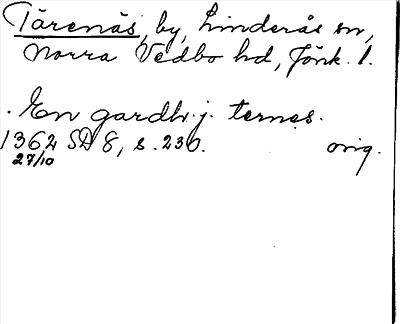 Tärenäs, by, Linderås sn,
Norra Vedbo hd, Jönk. l.
. En gardh. j. ternes.
1362 SD 8, s. 230. orig.
27/10